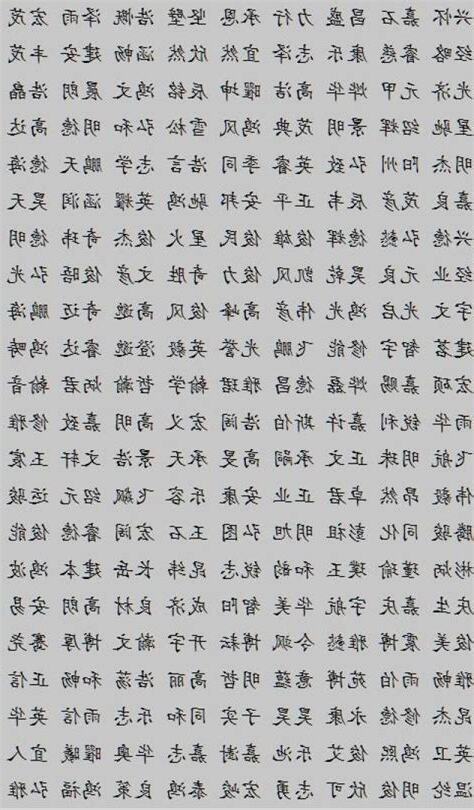 兴怀 嘉石 昌盛 力行 承恩 坚壁 浩慨 泽雨 宏茂
经略 睿慈 康乐 志泽 宜然 欣然 涵畅 建安 丰茂
光济 元甲 烨华 高洁 曜坤 辰铭 鸿文 晨朗 浩晶
星驰 绍辉 景明 茂典 鸿风 雪松 弘和 明德 高达
明杰 阳州 弘致 英睿 季同 浩言 志学 鹏天 德海
嘉良 茂彦 辰韦 正平 安邦 驰鸿 英耀 涵润 昊天
兴德 弘懿 德辉 俊雄 俊民 星火 俊杰 奇玮 德明
经业 元良 昊乾 凯风 俊力 奇胜 文彦 俊晤 弘光
宇文 光启 鸿光 伟彦 高峰 俊风 高邈 奇迈 鹏海
建茗 智宇 修能 飞鹏 光誉 英毅 澄邈 睿达 鸿畴
宏硕 嘉赐 烨磊 德昌 雅珺 翰学 哲瀚 炳君 翰音
雨华 锐利 嘉许 斯伯 浩阔 宏义 高明 嘉致 修雅
飞航 明珠 正文 承嗣 高旻 承天 景浩 文轩 玉宸
伟毅 昂然 卓君 正业 安康 乐容 飞飙 绍元 运骏
腾骏 同化 彭祖 明旭 弘图 玉石 宏阔 睿德 俊能
彬炳 瑾瑜 璞玉 和韵 锐志 昆纬 长岳 建本 鸿波
庆生 嘉庆 宇航 华美 智阳 成济 良材 高朗 安易
俊美 震博 雅懿 今飒 博耘 开宇 瀚文 博厚 骞尧
雅畅 雨伯 苑博 意蕴 明哲 高丽 浩荡 和畅 正信
昆杰 修德 永康 昊昊 子实 同和 乐志 雨信 英华
英卫 鸿熙 俊艾 乐池 嘉澍 嘉志 华奥 曜曦 宜人
温纶 明俊 欣可 志勇 宏峻 泰鸿 良策 鸿福 弘雅